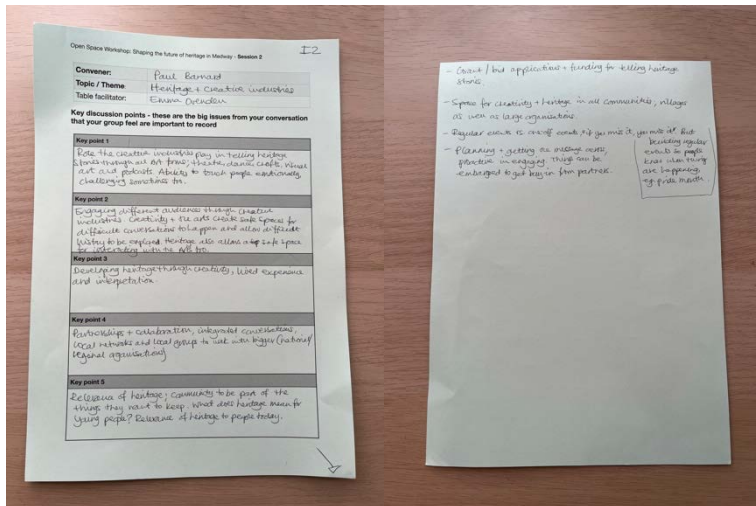 Open Space Workshop: Shaping the future of heritage in Medway - Session 2
I2
Convener: Paul Barnard
Topic / Theme Heritage + Creative industries
Table facilitator: Emma
Key discussion points - these are the big issues from your conversation
that your group feel are important to record
Key point 1
Role the creative industries play in telling heritage
stories through all Art forms; theatre, dance, crafts, visual
art and podcasts. Ability to touch people emotionally,
challenging sometimes too.
Key point 2
Engaging different audiences through creative
industries. Creativity + the arts create safe spaces for
difficult conversations to happen and allow difficult
history to be explored. Heritage also allows a safe space
for interacting with the Arts too.
Key point 3
Developing heritage through creativity, lived experience
and interpretation.
Key point 4
Partnerships + collaboration, integrated conversations,
local networks and local groups to link with bigger (national/
regional organisations)
Key point 5
Relevance of heritage; community to be part of the
things they want to keep. What does heritage mean for
young people? Relevance of heritage to people today.
- Grant / bid applications + funding for telling heritage
stories.
- Spaces for creativity + heritage in all communities, villages
as well as large organisations.
- Regular events vs one-off events, if you miss it, you miss it! But
- Planning + getting a message across,
in engaging. Things can be
embargoed to get buy in from partners.
regular
events so people
know when things
are happening,
eg pride month